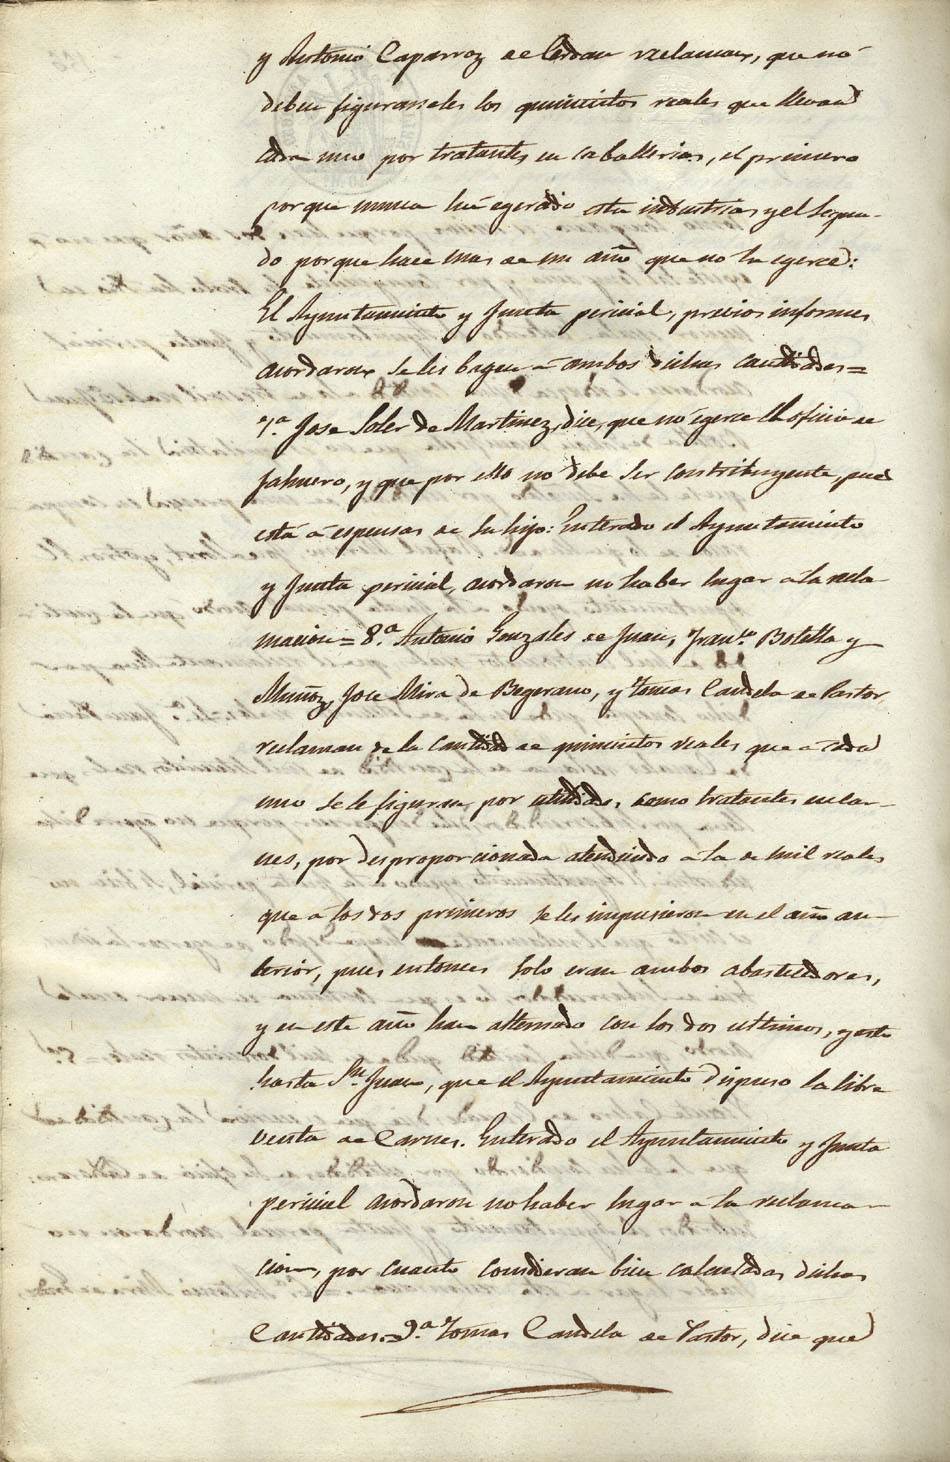 y Antonio Caparroz de Cerdan reclaman, que nó
deben figurarseles los quinientos reales que llevan
cada uno por tratantes en caballerias, el primero
porque nunca há egercido esta industria, y el Segun-
do porque hace mas de un año que no la egerce:
El Ayuntamiento y Junta pericial, previos informes
acordaron se les bagen á ambos dichas cantidades=
7.ª Jose Soler de Martinez, dice, que nó egerce el oficio de
jalmero, y que por ello nó debe ser contribuyente, pues
está á espensas de su hijo: Enterado el Ayuntamiento
y Junta pericial, acordaron no haber lugar á la recla-
macion= 8.ª Antonio Gonzales de Juan, Fran.co Botella y
Muñoz, Jose Mira de Begerano, y Tomas Candela de Pastor,
reclaman de la cantidad de quinientos reales que á cada
uno se le figuran por utilidades como tratantes en car-
nes, por desproporcionada atendiendo á la de mil reales
que á los dos primeros se les impusieron en el año an-
terior, pues entonces solo eran ambos abastecedores,
y en este año han alternado con los dos ultimos, y esto
hasta Sn. Juan, que el Ayuntamiento dispuso la libre
venta de Carnes. Enterado el Ayuntamiento y Junta
pericial acordaron no haber lugar á la reclama-
cion, por cuanto consideran bien calculadas dichas
Cantidades.= 9.ª Tomas Candela de Pastor, dice que